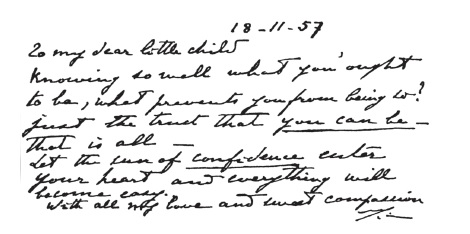 18-11-57
To my dear little child
Knowing so well what you ought
to be, what prevents you from being so?
just the trust that you can be —
that is all —
Let the sun of confidence enter
your heart and everything will
become easy.
With all my love and sweet compassion